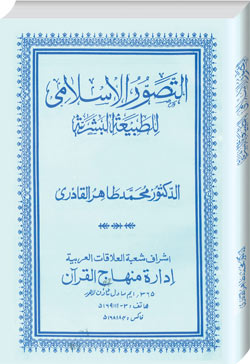 التصور الإسلامي
للطبيعة البشرية
الدكتور محمد طاهر القادري
إشراف شعبة العلاقات العربية
إدارة منهاج القرآن
٣٦٥، ايم ماڈل ٹاؤن لاہور